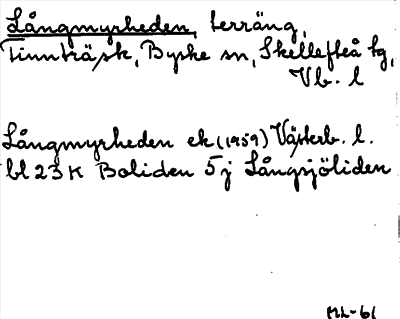 Långmyrheden, terräng,
Tinnträsk, Byske sn, Skellefteå tg,
Vb. l
Långmyrheden ek (1959) Västerb. l.
bl 23 K Boliden 5j Långsjöliden
ML-61